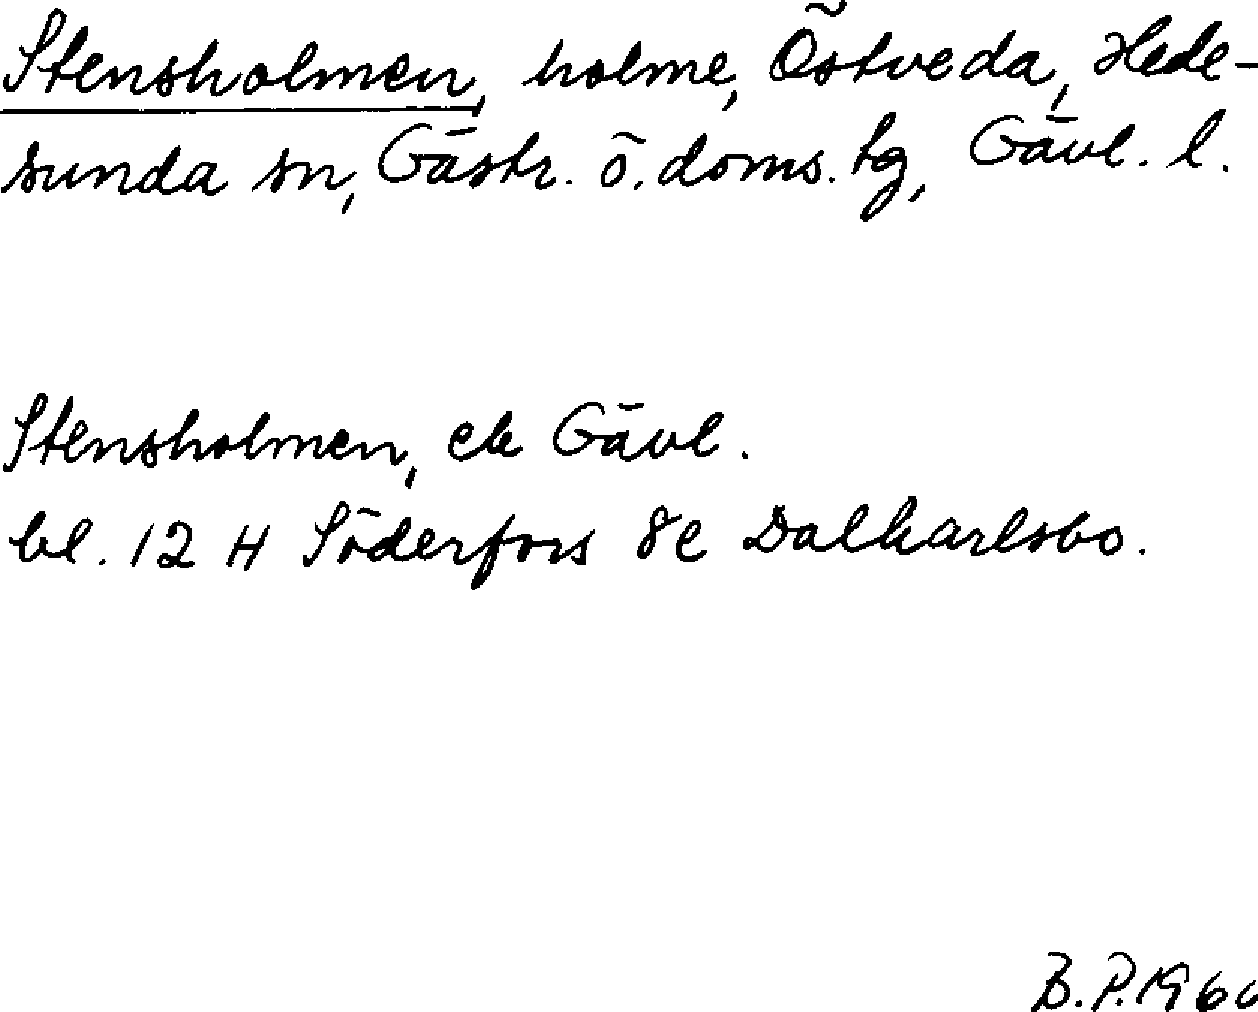 Stensholmen, holme, Östveda, Hede-
sunda sn, Gästr. ö. doms. tg, Gävl. l.
Stensholmen, ek Gävl.
bl. 12 H Söderfors 8e Dalkarlsbo.
B.P.1960